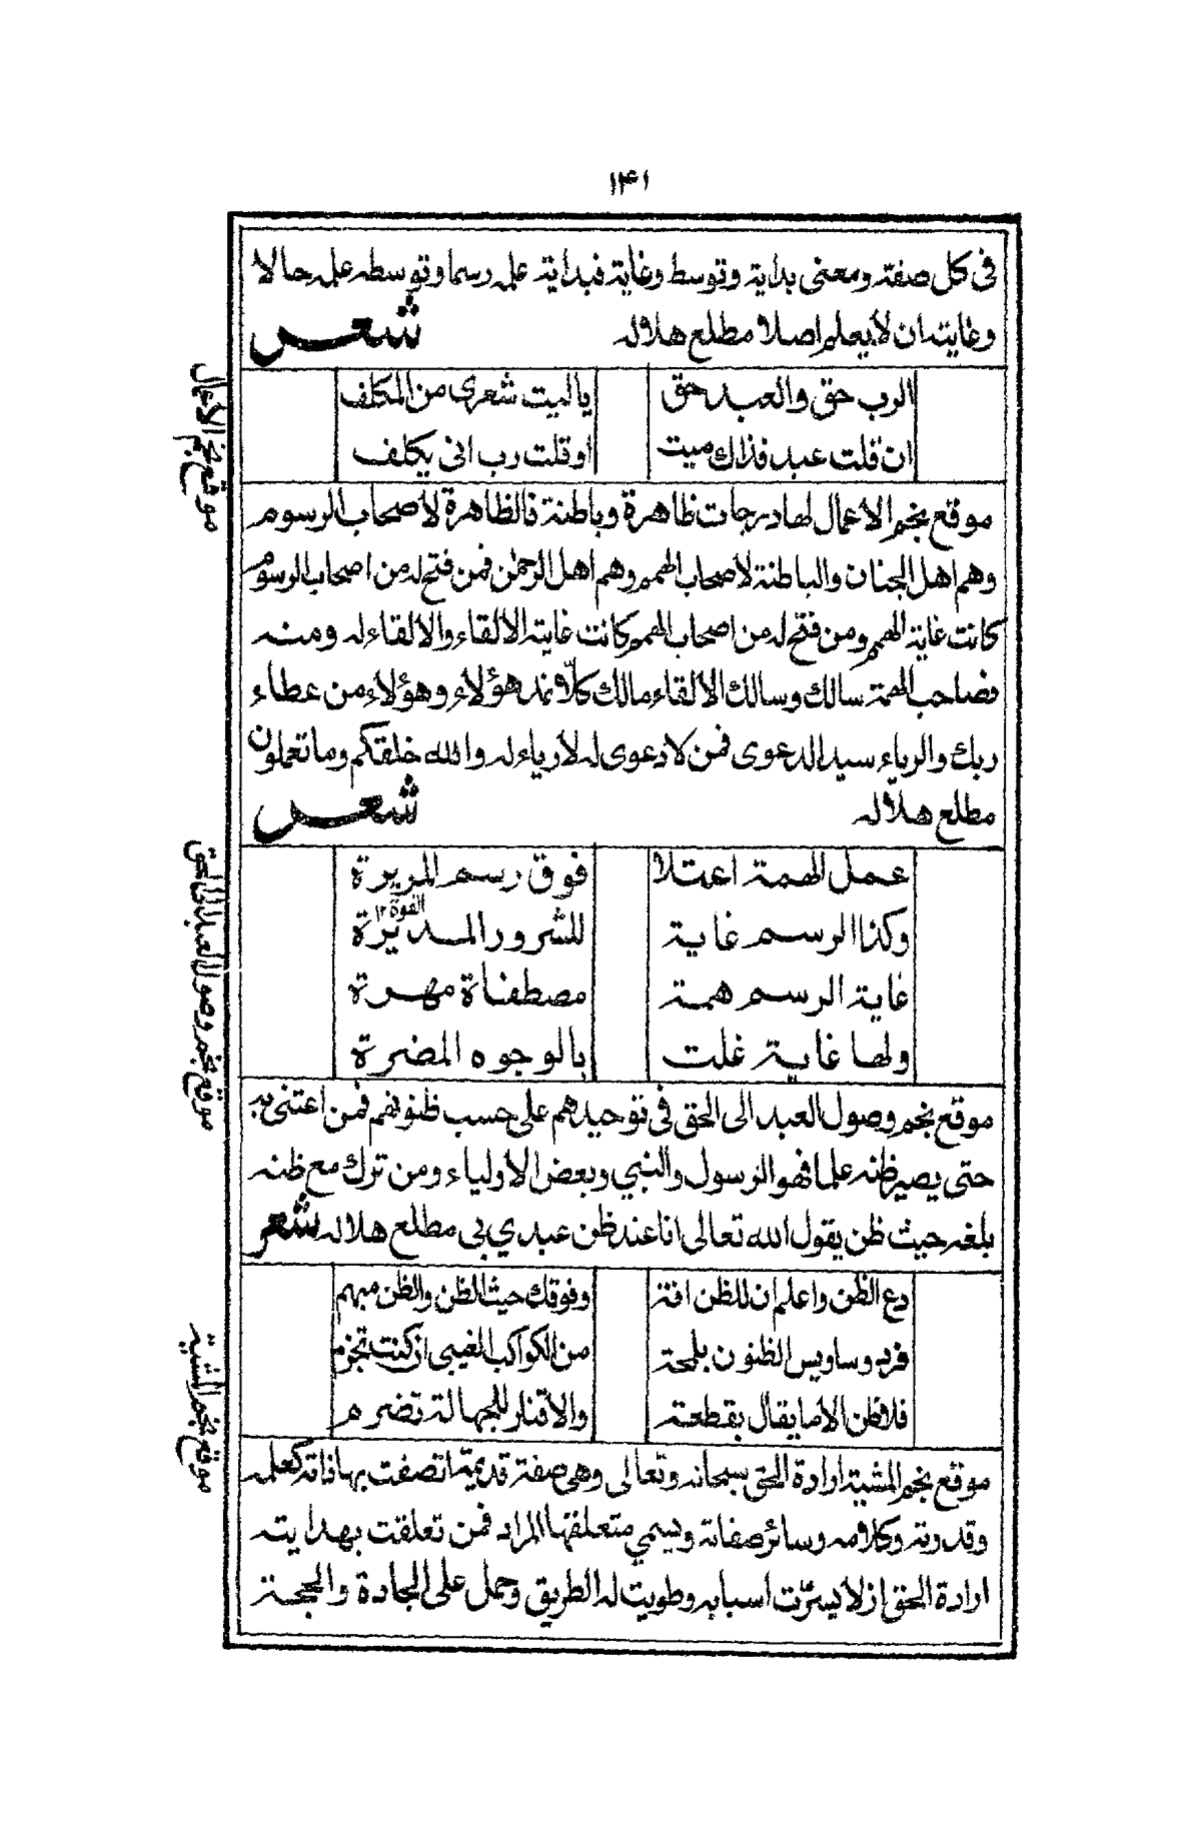 ١٤١
فى كل صفة ومعنى بداية وتوسط وغاية فبداية علمه رسما وتوسطه علمه حالا
وغايته ان لا يعلم اصلا مطلع هلاله شعر
الرب حق والعبد حق ياليت شعرى من المكلف
ان قلت عبد فذاك ميت او قلت رب انى يكلف
موقع نجم الاعمال
موقع نجم الاعمال لها درجات ظاهرة وباطنة فالظاهرة لاصحاب الرسوم
وهم اهل الجنان والباطنة لاصحاب الهمم وهم اهل الرحمٰن فمن فتح له من اصحاب الرسوم
كانت غاية الهمم ومن فتح له من اصحاب الهمم كانت غايته الالقاء والالقاء له ومنه
فصاحب الهمة سالك وسالك الالقاء مالك كلّا نمد هؤلاء وهؤلاء من عطاء
ربك والرياء سيد الدعوى فمن لا دعوى له لا رياء له والله خلقكم وما تعملون
مطلع هلاله شعر
عمل الهمة اعتلا فوق رسم المريرة
القوة ١٢
وكذا الرسم غاية للشرور المديرة
غاية الرسم همة مصطفاة مهرة
ولها غاية غلت بالوجوه المضرة
موقع نجم وصول العبد الى الحق
موقع نجم وصول العبد الى الحق فى توحيدهم على حسب ظنونهم فمن اعتنى به
حتى يصير ظنه علما فهو الرسول والنبي وبعض الاولياء ومن ترك مع ظنه
بلغه حيث ظن يقول الله تعالى انا عند ظن عبدي بى مطلع هلاله شعر
دع الظن واعلم ان للظن افة وفوقك حيث الظن والظن مبهم
فرد وساويس الظنون بلمحة من الكواكب الغيبى ان كنت تجزم
فلا ظن الا ما يقال بقطعة والا فنار للجهالة تضرم
موقع نجم المشية
موقع نجم المشية ارادة الحق سبحانه وتعالى وهى صفة قديمة اتصفت بها ذاته كعلمه
وقدرته وكلامه وسائر صفاته ويسمي متعلقها المراد فمن تعلقت بهدايته
ارادة الحق ازلا يسرّت اسبابه وطويت له الطريق وحمل على الجادة والمحجة